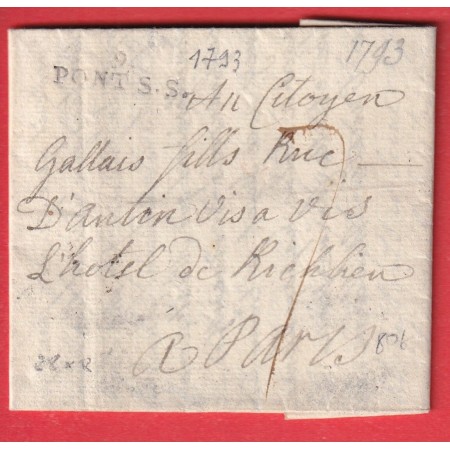 1793 1793
9
PONT S.S.
Au Citoyen
Gallais fills Rue
D'antin vis a vis
L'hotel de Richlieu
a Paris